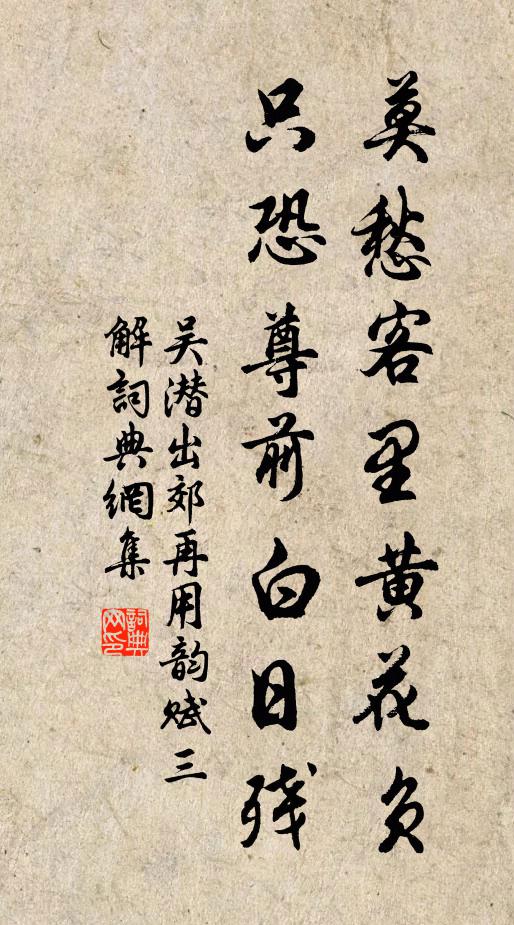 莫愁客里黄花负
只恐尊前白日残
吴潜出郊再用韵赋三
解词典網集
詞典网印